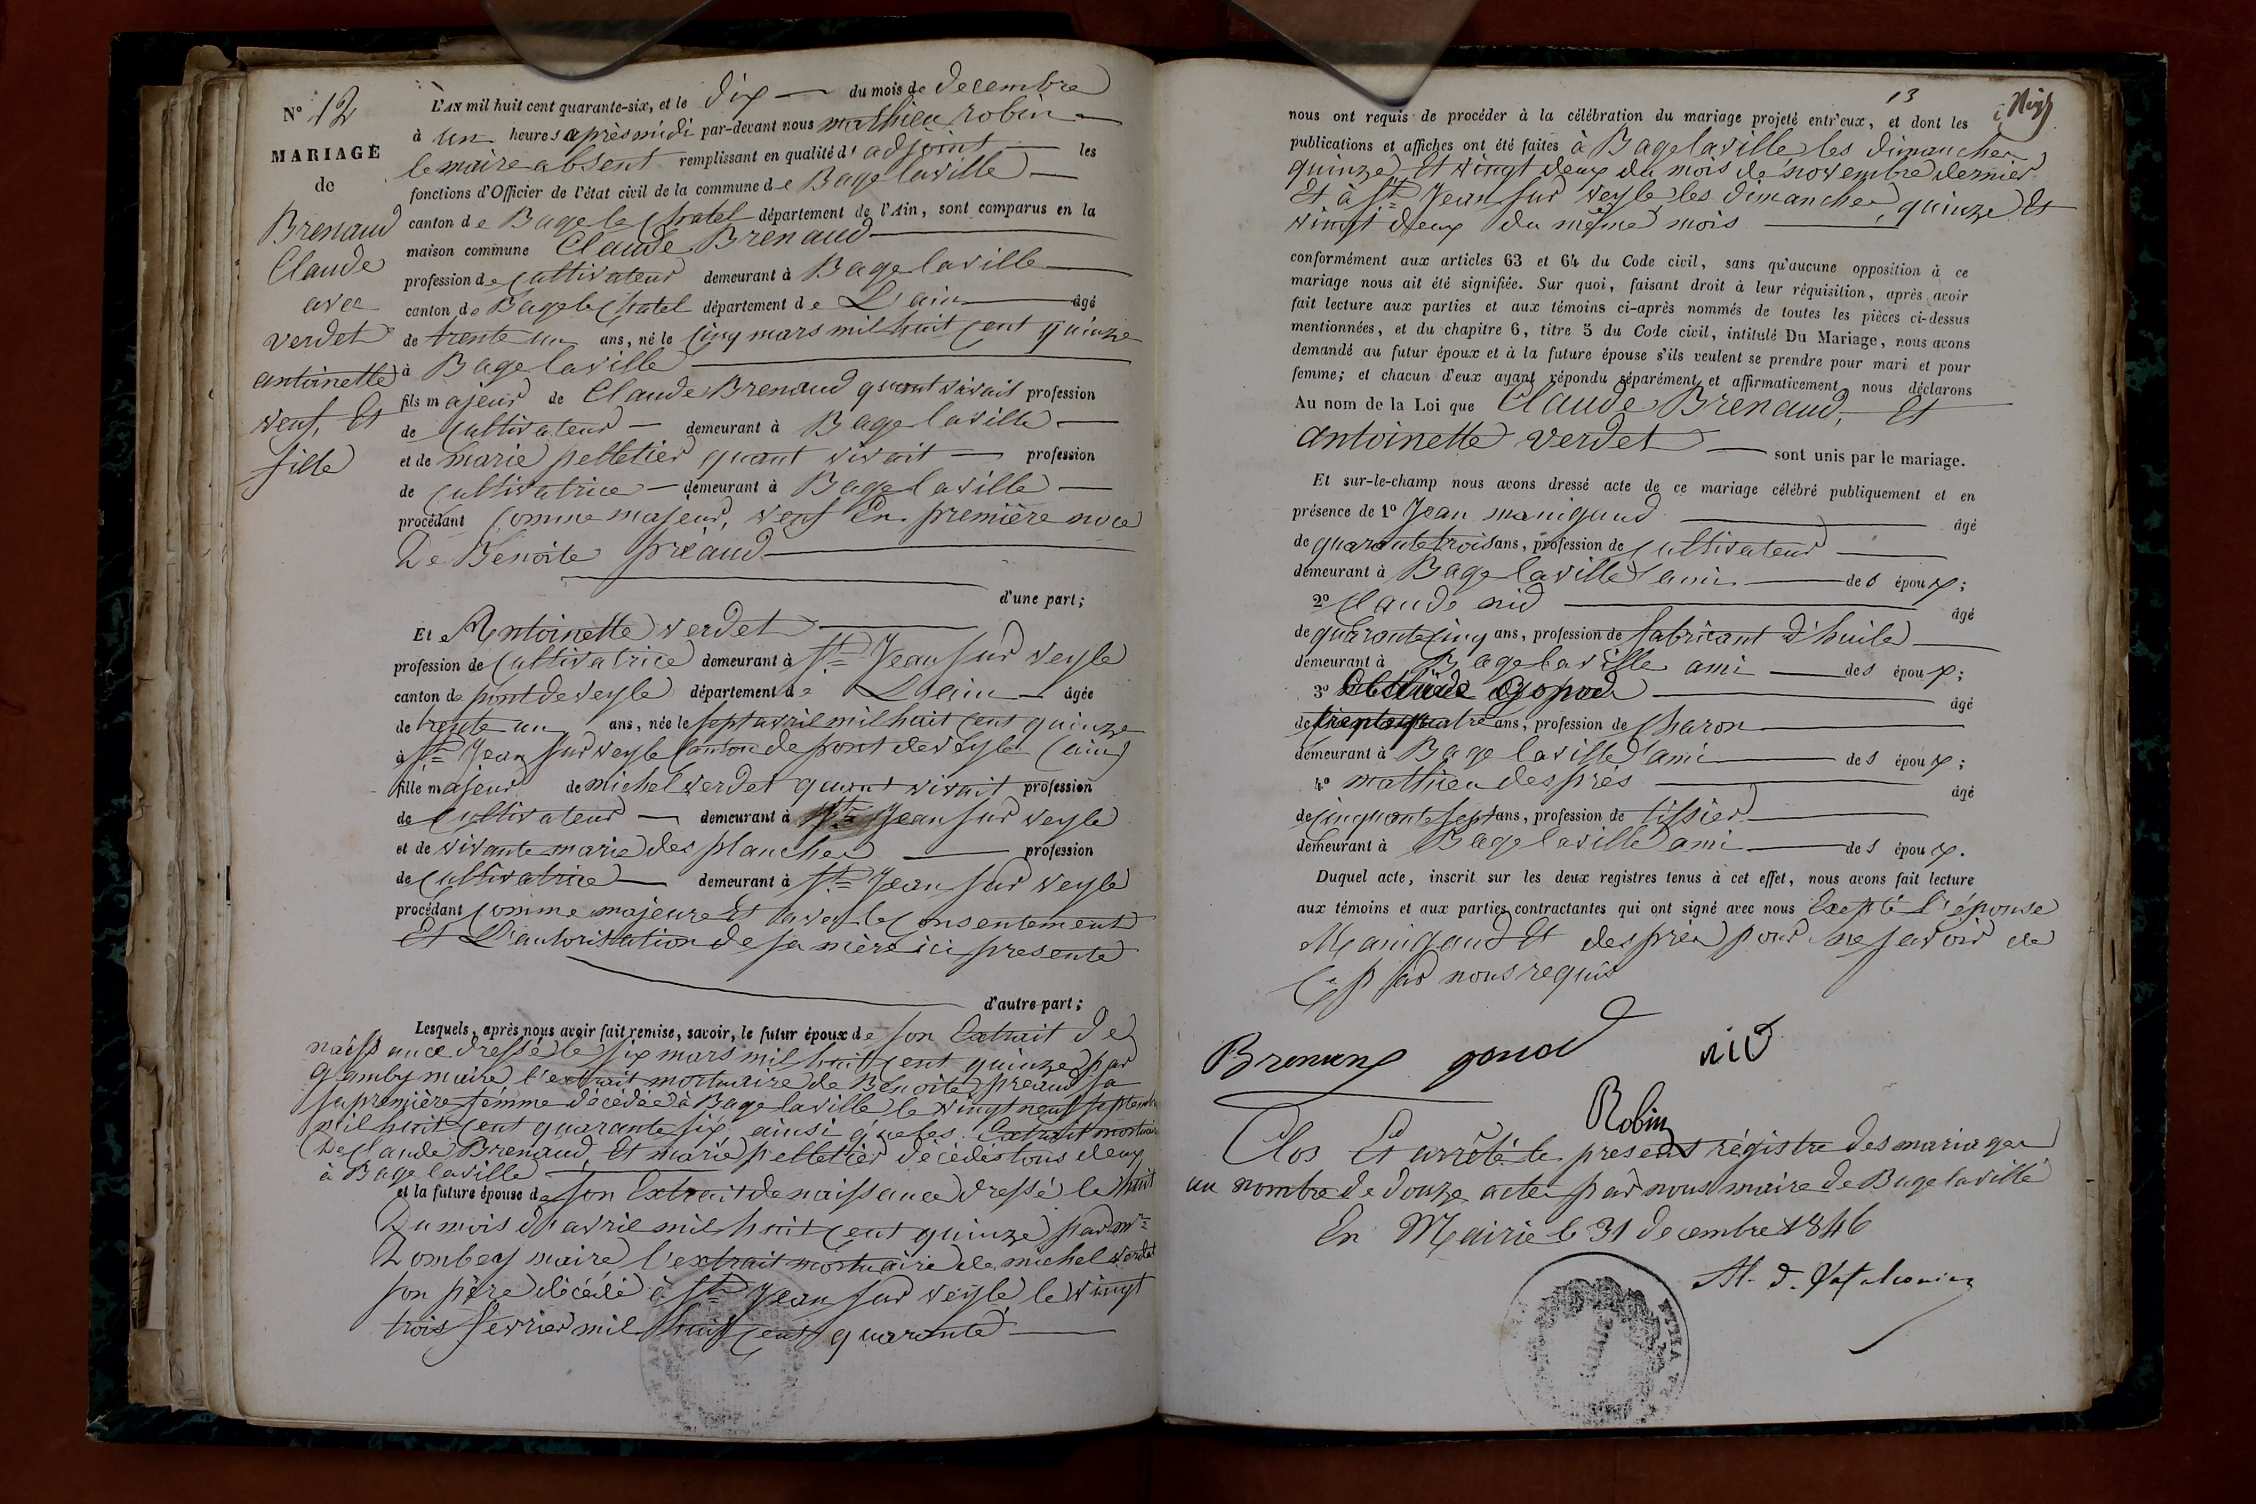 N° 12
MARIAGE
de
Brenaud
Claude
avec
verdet
antoinette
veuf, Et
fille
L'AN mil huit cent quarante-six, et le dix du mois de decembre
à un heures après midi par-devant nous mathieu robin
le maire absent remplissant en qualité d'adjoint les
fonctions d'Officier de l'état civil de la commune de Bage laville
canton de Bage le Chatel département de l'Ain, sont comparus en la
maison commune Claude Brenaud
profession de Cultivateur demeurant à Bage laville
canton de Bage le Chatel département de L'ain âgé
de trente un ans, né le Cinq mars mil huit Cent quinze
à Bage laville
fils majeur de Claude Brenaud quant vivait profession
de Cultivateur demeurant à Bage laville
et de marie pelletier quant vivait profession
de Cultivatrice demeurant à Bage laville
procédant Comme majeur, veuf En première noce
De Benoite préaud
d'une part;
Et Antoinette verdet
profession de Cultivatrice demeurant à St Jean sur veyle
canton de pont de veyle département de L'ain âgée
de trente un ans, née le sept avril mil huit Cent quinze
à St Jean sur veyle Canton de pont de veyle (ain)
fille majeur de michel verdet quant vivait profession
de Cultivateur demeurant à St Jean sur veyle
et de vivante marie des planches profession
de Cultivatrice demeurant à St Jean sur veyle
procédant Comme majeure Et avec le Consentement
Et L'autorisation de sa mère ici presente
d'autre part;
Lesquels, après nous avoir fait remise, savoir, le futur époux de son Extrait de
naissance dressé le six mars mil huit Cent quinze par
maire l'extrait mortuaire de Benoite preaud sa
sa première femme décédée à Bage laville le vingt neuf septembre
mil huit Cent quarante six ainsi que les Extrait mortuaire
De Claude Brenaud Et marie pelletier décédés tous deux
à Bage laville
et la future épouse de son Extrait de naissance dressé le huit
Du mois d'avril mil huit Cent quinze par mr
Dombey maire l'extrait mortuaire de michel verdet
son père décédé à St Jean sur veyle le vingt
trois fevrier mil huit Cent quarante
13
nous ont requis de procéder à la célébration du mariage projeté entr'eux, et dont les
publications et affiches ont été faites à Bage laville les dimanches
quinze Et vingt deux du mois de novembre dernier
Et à St Jean sur veyle les dimanches, quinze Et
vingt deux du même mois
conformément aux articles 63 et 64 du Code civil, sans qu'aucune opposition à ce
mariage nous ait été signifiée. Sur quoi, faisant droit à leur réquisition, après avoir
fait lecture aux parties et aux témoins ci-après nommés de toutes les pièces ci-dessus
mentionnées, et du chapitre 6, titre 5 du Code civil, intitulé Du Mariage, nous avons
demandé au futur époux et à la future épouse s'ils veulent se prendre pour mari et pour
femme; et chacun d'eux ayant répondu séparément et affirmativement, nous déclarons
Au nom de la Loi que Claude Brenaud, Et
antoinette verdet sont unis par le mariage.
Et sur-le-champ nous avons dressé acte de ce mariage célébré publiquement et en
présence de 1° Jean manigaud âgé
de quarante trois ans, profession de Cultivateur
demeurant à Bage laville ami des époux;
2° Claude nid âgé
de quarante Cinq ans, profession de fabricant d'huile
demeurant à Bage laville ami des époux;
3° âgé
de trente quatre ans, profession de Charon
demeurant à Bage laville ami des époux;
4° mathieu desprès âgé
de Cinquante sept ans, profession de tissier
demeurant à Bage laville ami des époux.
Duquel acte, inscrit sur les deux registres tenus à cet effet, nous avons fait lecture
aux témoins et aux parties contractantes qui ont signé avec nous Exepté L'épouse
Manigaud Et desprès pour ne savoir de
Ce par nous requis
nid
Robin
Clos Et arrêté le present régistre des mariages
au nombre de douze actes par nous maire de Bage laville
En Mairie le 31 decembre 1846